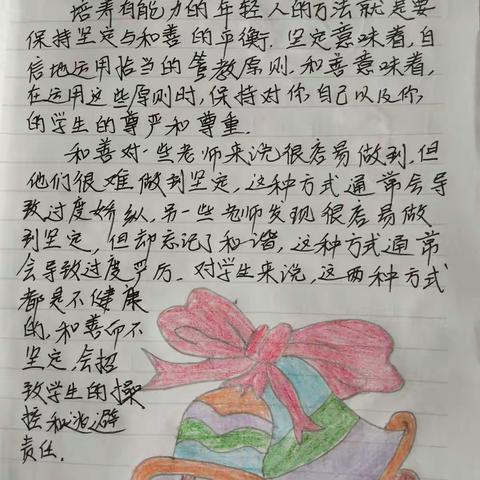 培养有能力的年轻人的方法就是要
保持坚定与和善的平衡.坚定意味着,自
信地运用恰当的管教原则.和善意味着,
在运用这些原则时,保持对你自己以及你
的学生的尊严和尊重.
和善对一些老师来说很容易做到,但
他们很难做到坚定,这种方式通常会导
致过度娇纵,另一些老师发现很容易做
到坚定,但却忘记了和谐,这种方式通常
会导致过度严厉.对学生来说,这两种方式
都是不健康
的,和善而不
坚定,会招
致学生的操
控和逃避
责任.